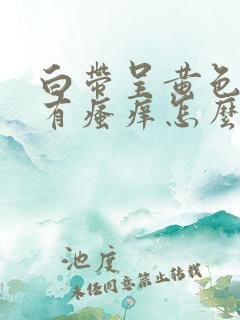 白帶呈黄色
有瘙痒怎麽
池度
未经同意禁止转载